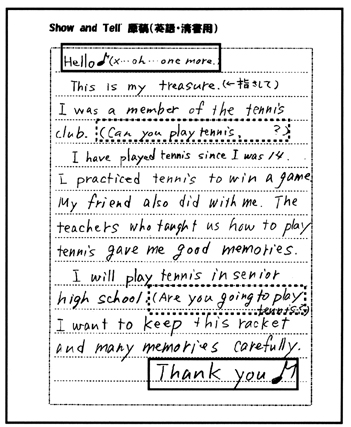 Show and Tell 原稿(英語・清書用)
Hello♪(x…oh…one more.
This is my treasure.(←指さして)
I was a member of the tennis
club. (Can you play tennis, ?)
I have played tennis since I was 14.
I practiced tennis to win a game.
My friend also did with me. The
teachers who taught us how to play
tennis gave me good memories.
I will play tennis in senior
high school. (Are you going to play
tennis?)
I want to keep this racket
and many memories carefully.
Thank you♫